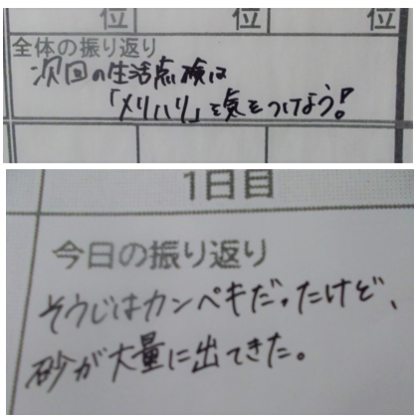 位 位 位
全体の振り返り
次回の生活点検は
「メリハリ」を気をつけよう!
1日目
今日の振り返り
そうじはカンペキだったけど、
砂が大量に出てきた。